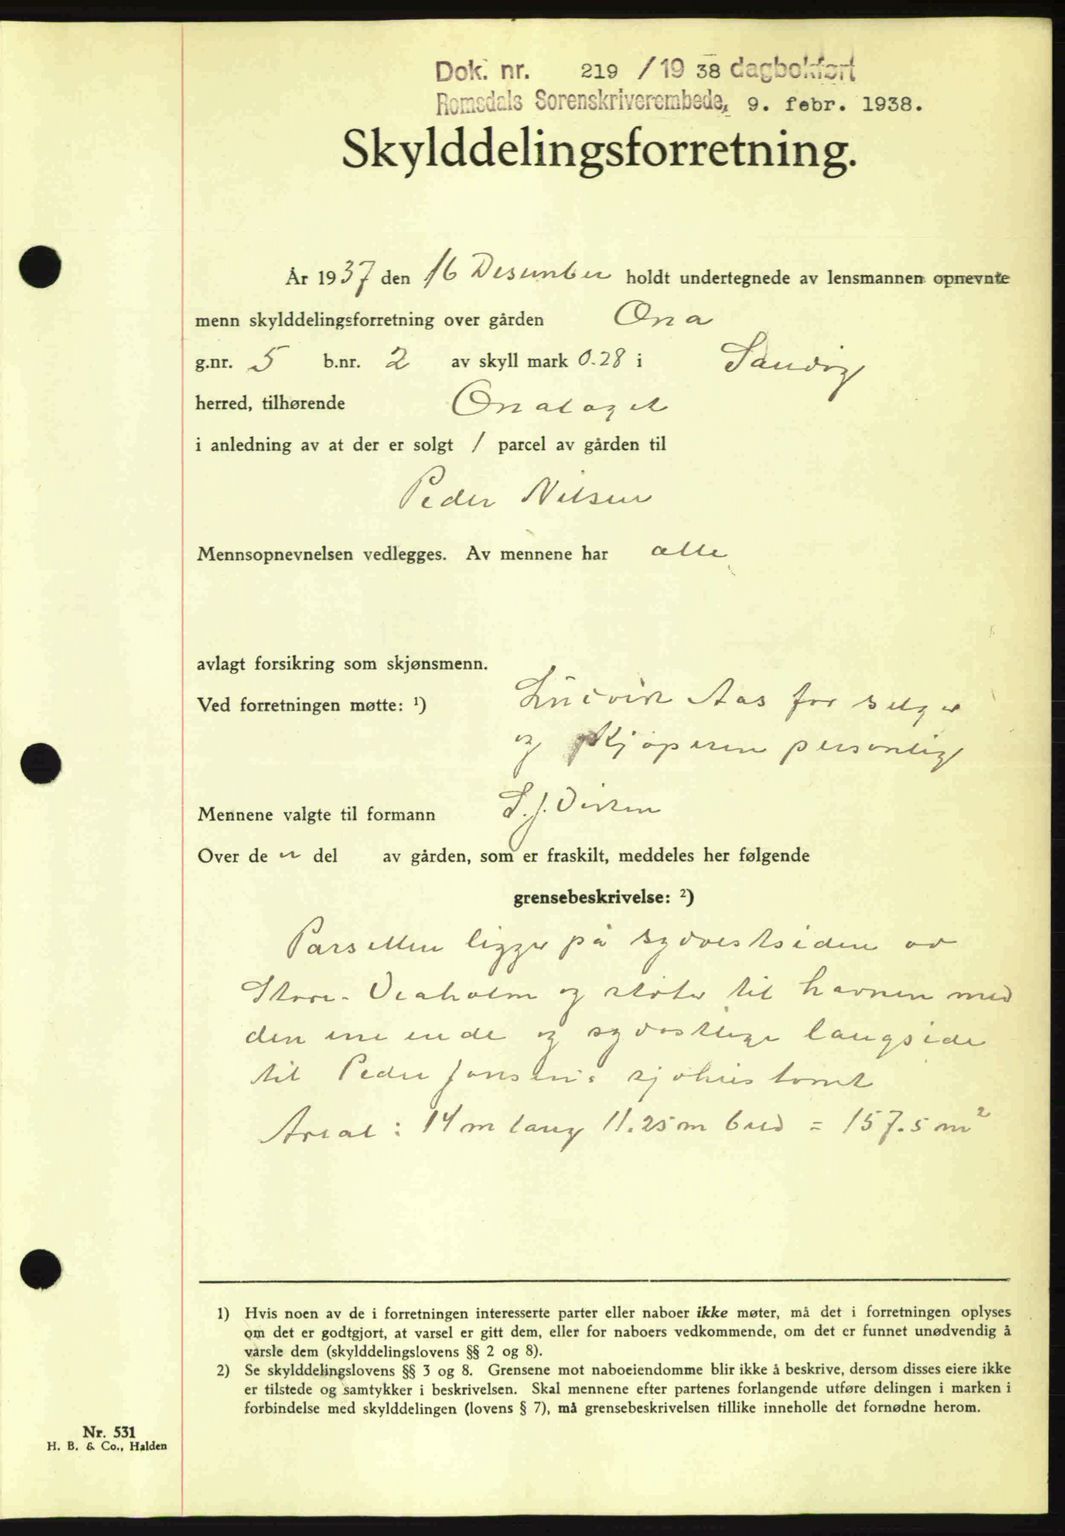 Dok. nr. 219 /19 38 dagbokført
Romsdals Sorenskriverembede, 9. febr. 1938.
Skylddelingsforretning.
År 1937 den 16 Desember holdt undertegnede av lensmannen opnevnte
menn skylddelingsforretning over gården Ona
g.nr. 5 b.nr. 2 av skyll mark 0.28 i Sandøy
herred, tilhørende Onalaget
i anledning av at der er solgt 1 parcel av gården til
Peder Nilsen
Mennsopnevnelsen vedlegges. Av mennene har alle
avlagt forsikring som skjønsmenn.
Ved forretningen møtte: ¹) Ludvik Aas for selger
og Kjøperen personlig
Mennene valgte til formann
Over de n del av gården, som er fraskilt, meddeles her følgende
grensebeskrivelse: ²)
Parsellen ligger på sydvestsiden av
Store- og støter til havnen med
den ene ende og sydøstlige langside
til Peder Jonsen's sjøhustomt
Areal : 14 m lang 11.25 m bred = 157.5 m²
1) Hvis noen av de i forretningen interesserte parter eller naboer ikke møter, må det i forretningen oplyses
om det er godtgjort, at varsel er gitt dem, eller for naboers vedkommende, om det er funnet unødvendig å
varsle dem (skylddelingslovens §§ 2 og 8).
2) Se skylddelingslovens §§ 3 og 8. Grensene mot naboeiendomme blir ikke å beskrive, dersom disses eiere ikke
er tilstede og samtykker i beskrivelsen. Skal mennene efter partenes forlangende utføre delingen i marken i
forbindelse med skylddelingen (lovens § 7), må grensebeskrivelsen tillike inneholle det fornødne herom.
Nr. 531
H. B. & Co., Halden